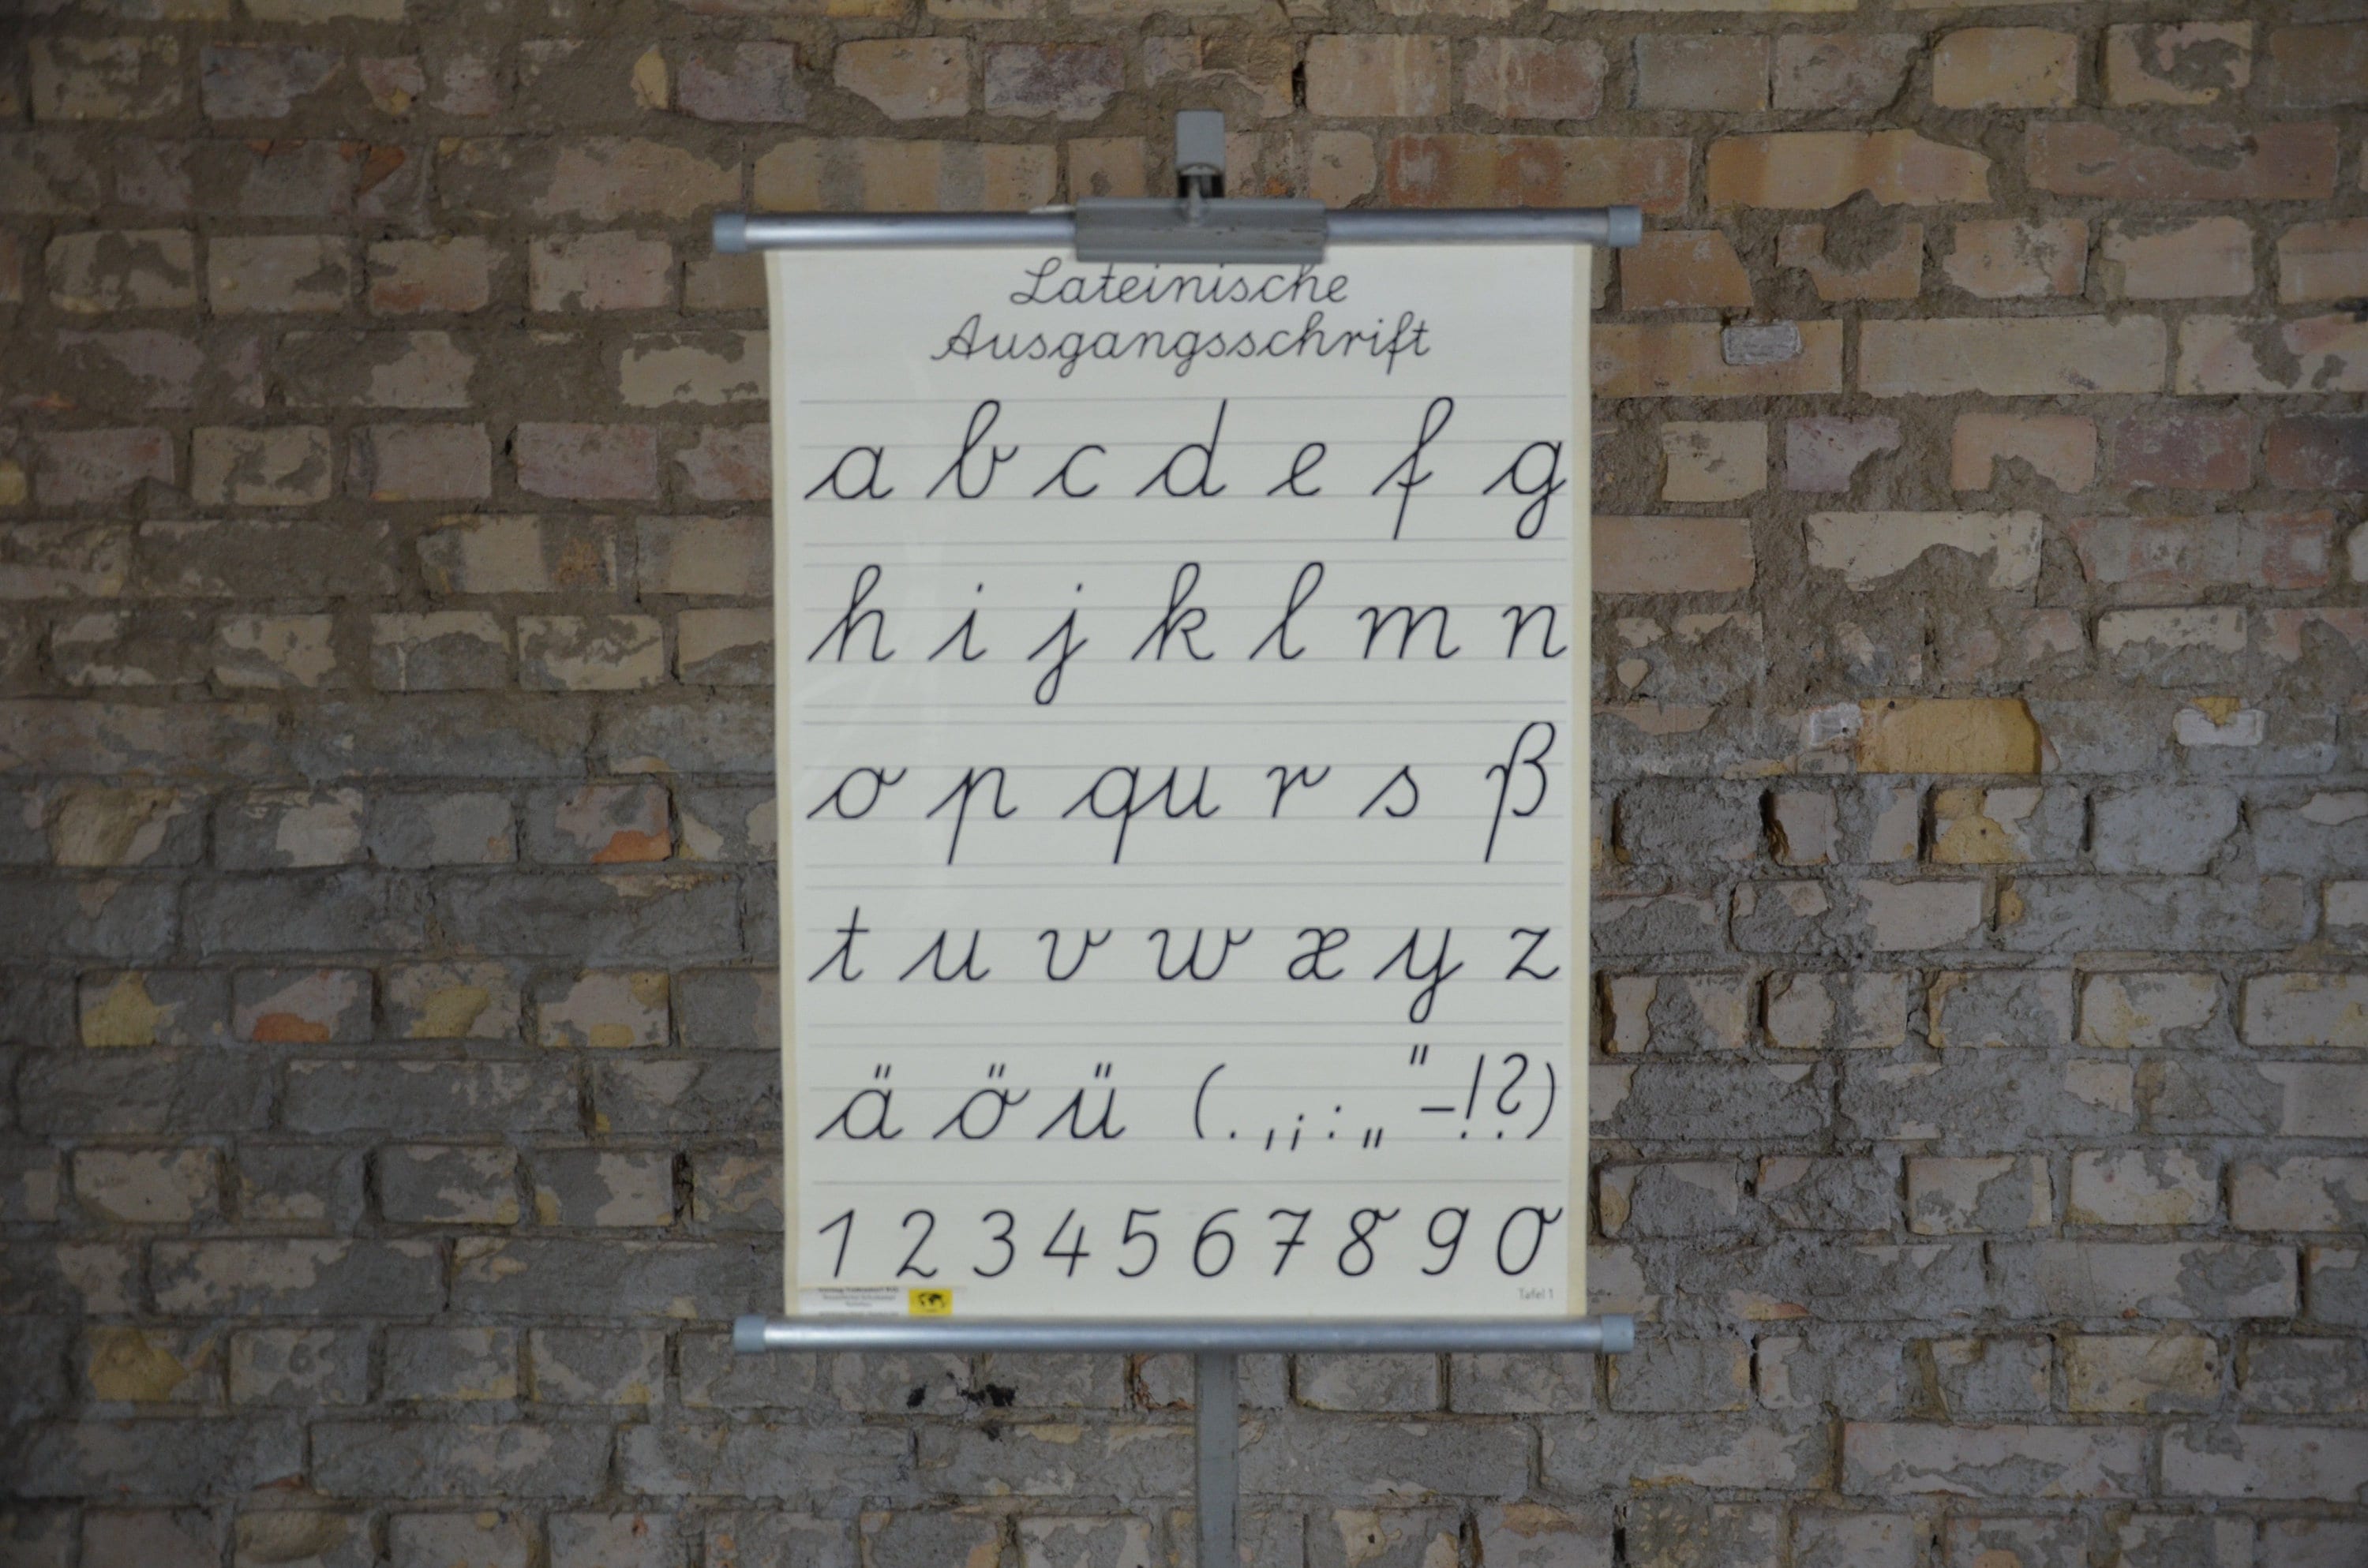 Lateinische
Ausgangsschrift
a b c d e f g
h i j k l m n
o p qu r s ß
t u v w x y z
ä ö ü ( . , ; : „ " – ! ? )
1 2 3 4 5 6 7 8 9 0
Tafel 1